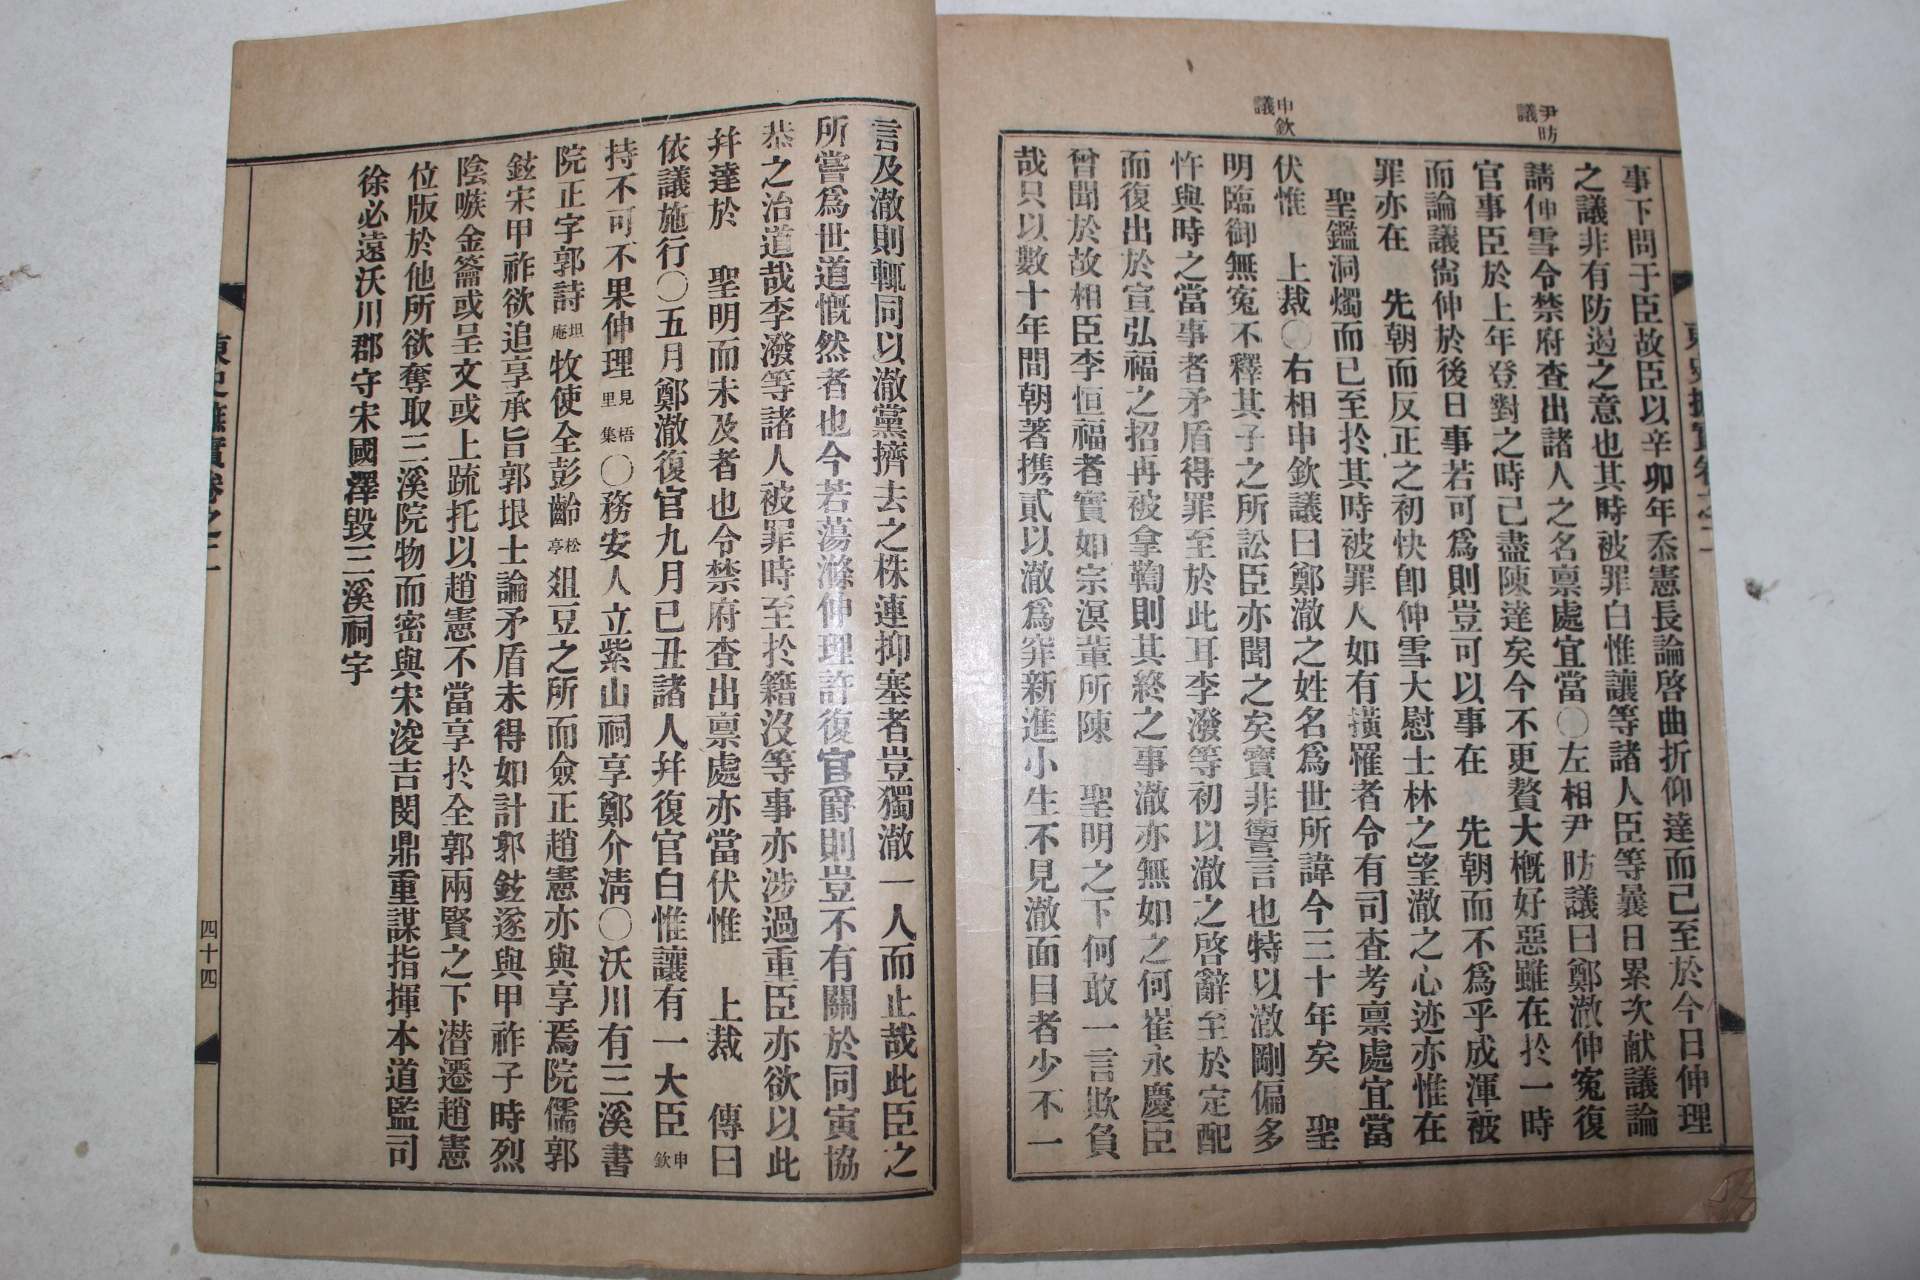 尹昉議
申欽議
事下問于臣故臣以辛卯年忝憲長論啓曲折仰達而已至於今日伸理
之議非有防遏之意也其時被罪白惟讓等諸人臣等曩日累次献議論
請伸雪令禁府查出諸人之名禀處宜當〇左相尹昉議曰鄭澈伸寃復
官事臣於上年登對之時己盡陳達矣今不更贅大槪好惡雖在於一時
而論議尙伸於後日事若可爲則豈可以事在 先朝而不爲乎成渾被
罪亦在 先朝而反正之初快卽伸雪大慰士林之望澈之心迹亦惟在
聖鑑洞燭而已至於其時被罪人如有橫罹者令有司查考禀處宜當
伏惟 上裁〇右相申欽議曰鄭澈之姓名爲世所諱今三十年矣 聖
明臨御無寃不釋其子之所訟臣亦聞之矣實非讆言也特以澈剛偏多
忤與時之當事者矛盾得罪至於此耳李潑等初以澈之啓辭至於定配
而復出於宣弘福之招再被拿鞫則其終之事澈亦無如之何崔永慶臣
曾聞於故相臣李恒福者實如宗溟輩所陳 聖明之下何敢一言欺負
哉只以數十年間朝著携貳以澈爲穽新進小生不見澈面目者少不一
言及澈則輒同以澈黨擠去之株連抑塞者豈獨澈一人而止哉此臣之
所嘗爲世道慨然者也今若蕩滌伸理許復官爵則豈不有關於同寅協
恭之治道哉李潑等諸人被罪時至於籍沒等事亦涉過重臣亦欲以此
幷達於 聖明而未及者也令禁府查出禀處亦當伏惟 上裁 傳曰
依議施行〇五月鄭澈復官九月己丑諸人幷復官白惟讓有一大臣申欽
持不可不果伸理見梧里集〇務安人立紫山祠享鄭介淸〇沃川有三溪書
院正字郭詩坦庵牧使全彭齡松亭俎豆之所而僉正趙憲亦與享焉院儒郭
鉉宋甲祚欲追享承旨郭垠士論矛盾未得如計郭鉉遂與甲祚子時烈
陰嗾金籥或呈文或上䟽托以趙憲不當享於全郭兩賢之下潜遷趙憲
位版於他所欲奪取三溪院物而密與宋浚吉閔鼎重謀指揮本道監司
徐必遠沃川郡守宋國澤毀三溪祠宇
四十四